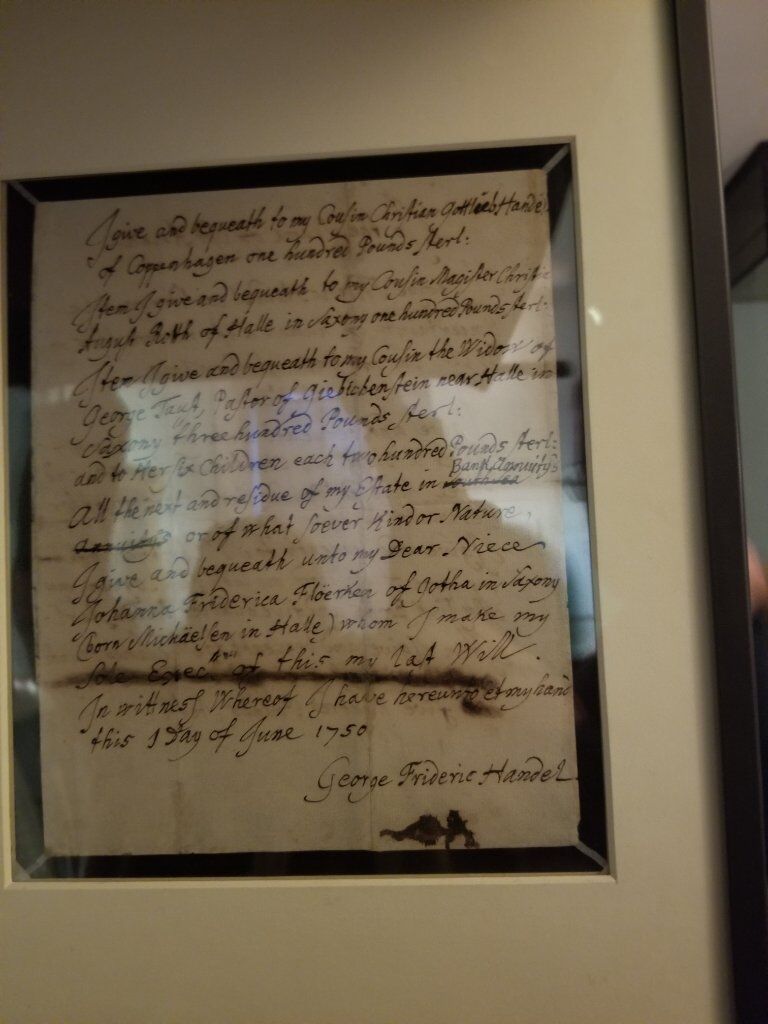 I give and bequeath to my Cousin Christian Gottlieb Handel
of Coppenhagen one hundred Pounds sterl:
Item I give and bequeath to my Cousin Magister Christian
August Roth of Halle in Saxony one hundred Pounds sterl:
Item I give and bequeath to my Cousin the Widow of
George Taust, Pastor of Giebichenstein near Halle in
Saxony three hundred Pounds sterl:
and to Her six Children each two hundred Pounds sterl:
All the next and residue of my Estate in Bank Annuity's
South Sea
Annuity's or of what soever Kind or Nature,
I give and bequeath unto my Dear Niece
Johanna Friderica Flöerken of Gotha in Saxony
(born Michäelsen in Halle) whom I make my
Sole Exec.trix of this my last Will.
In wittness Whereof I have hereunto set my hand
this 1 Day of June 1750
George Frideric Handel